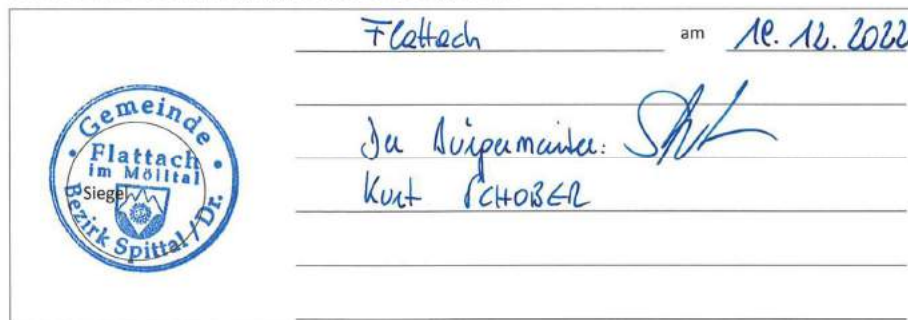 Flattach am 12. 2022
Gemeinde
Flattach
im Mölltal
Siegel
Bezirk Spittal/Dr.
Der Bürgermeister:
Kurt SCHOBER